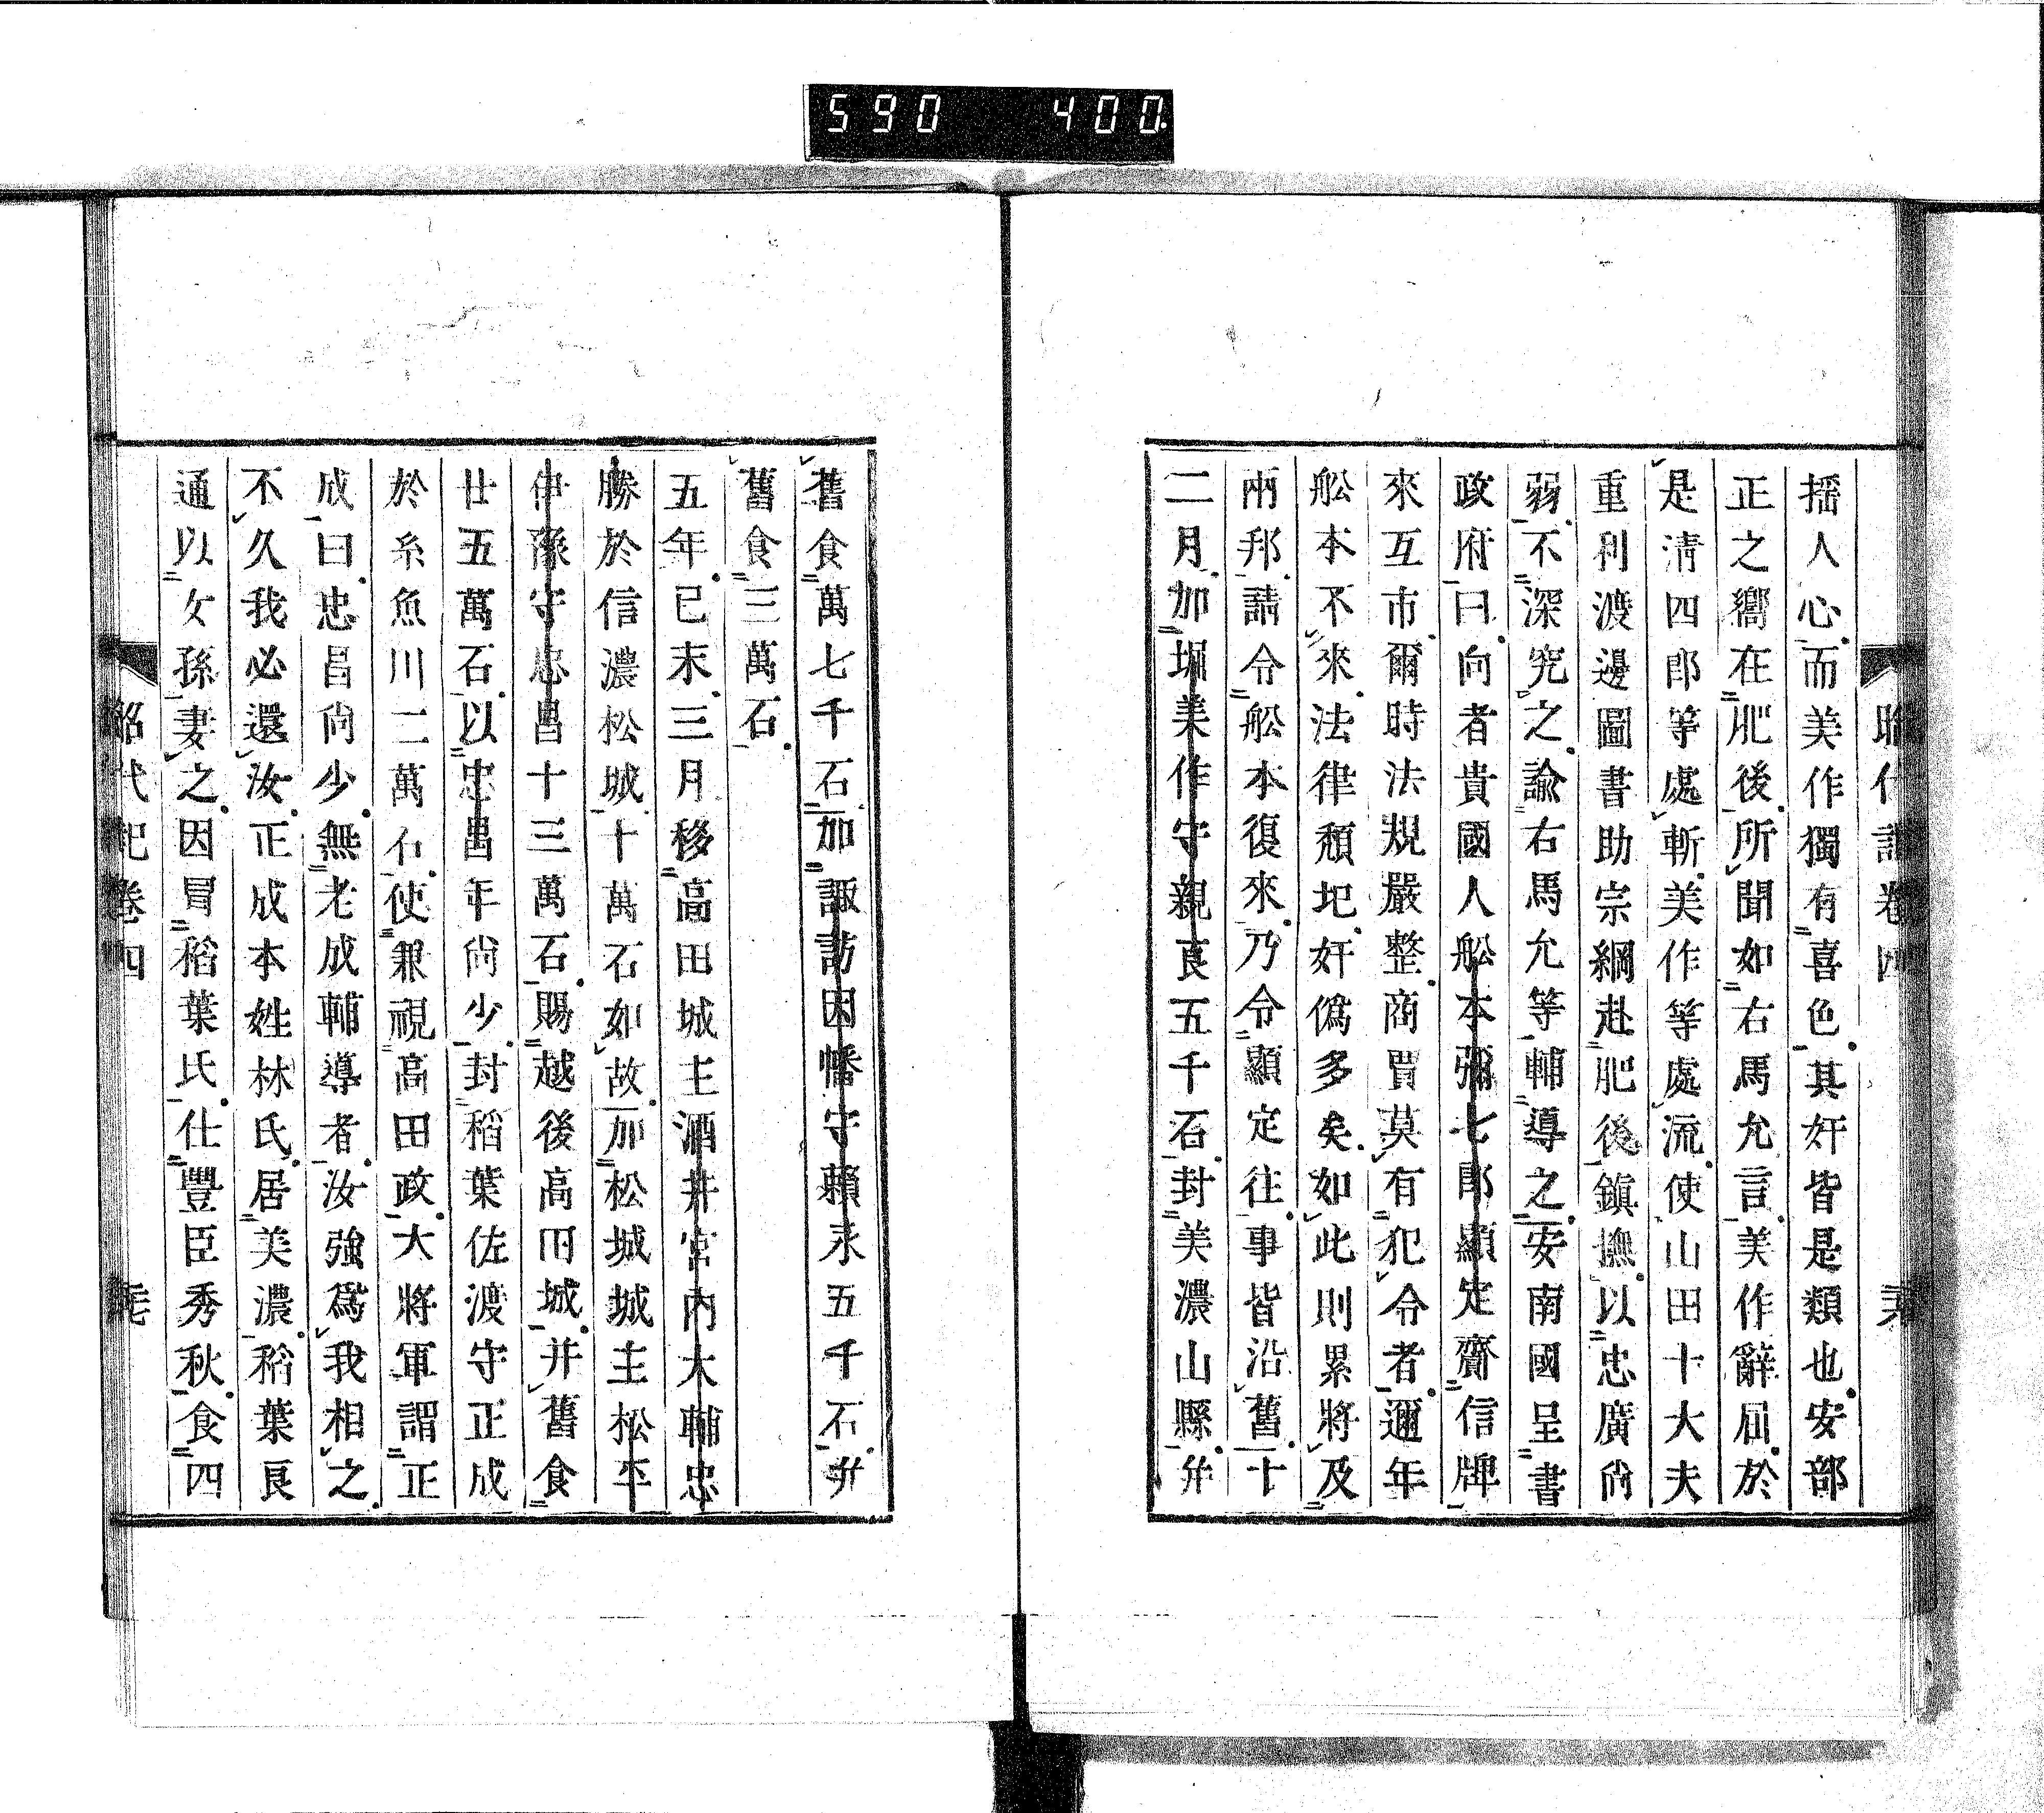 590 400
昭代記卷四
揺人心而美作獨有喜色其奸皆是類也安部
正之嚮在肥後所聞如右馬允言美作辭屈於
是淸四郎等處斬美作等處流使山田十大夫
重利渡邊圖書助宗綱赴肥後鎭撫以忠廣尙
弱不深究之諭右馬允等輔導之安南國呈書
政府曰向者貴國人舩本彌七郎顯定齎信牌
來互市爾時法規嚴整商賈莫有犯令者邇年
舩本不來法律頹圯奸僞多矣如此則累將及
兩邦請令舩本復來乃令顯定往事皆沿舊十
二月加堀美作守親良五千石封美濃山縣幷
舊食萬七千石加諏訪因幡守賴永五千石幷
舊食三萬石
五年己未三月移高田城主酒井宮内大輔忠
勝於信濃松城十萬石如故加松城城主松平
伊豫守忠昌十三萬石賜越後高田城幷舊食
廿五萬石以忠昌年尙少封稻葉佐渡守正成
於糸魚川二萬石使兼視高田政大將軍謂正
成曰忠昌尙少無老成輔導者汝強爲我相之
不久我必還汝正成本姓林氏居美濃稻葉良
通以女孫妻之因冒稻葉氏仕豐臣秀秋食四
昭代記卷四